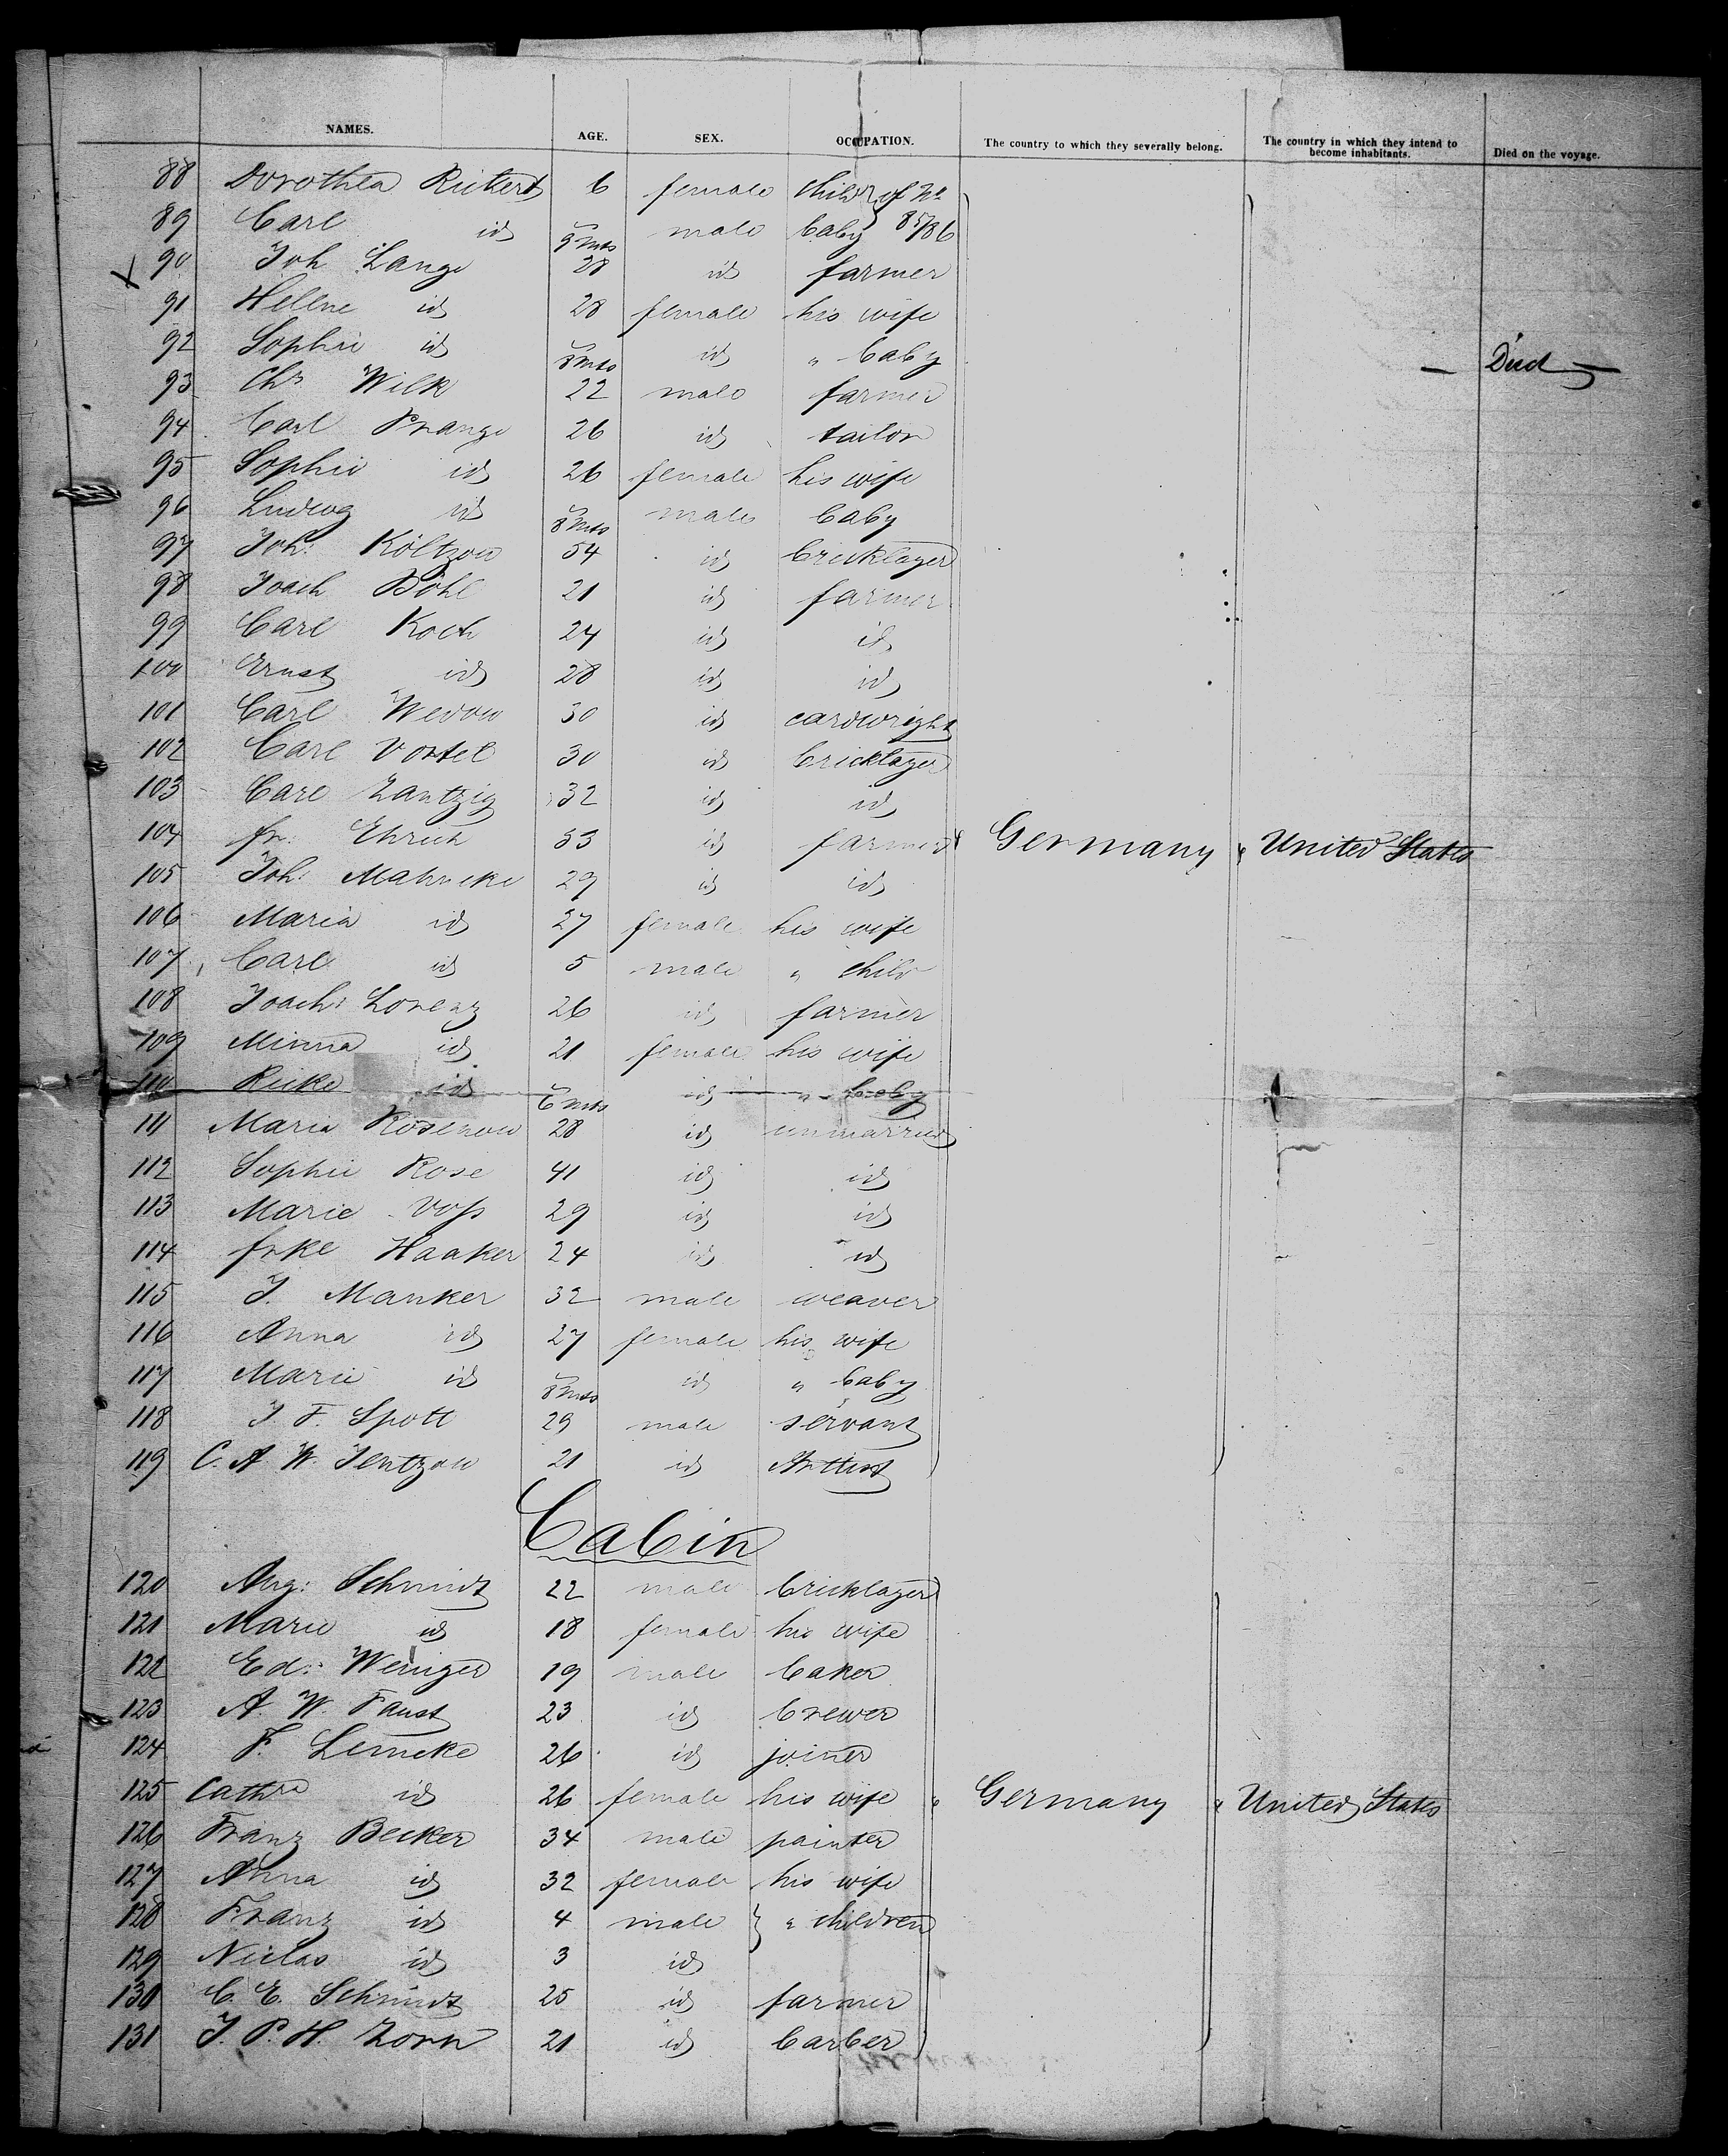 NAMES. AGE. SEX. OCCUPATION. The country to which they severally belong. The country in which they intend to become inhabitants. Died on the voyage.
88 Dorothea Rickert 6 female child } of No
89 Carl id 9 mts male baby 85/86
90 Joh Lange 28 id farmer
91 Hellene id 28 female his wife
92 Sophie id 8 mts id " baby — Died —
93 Chr Wilk 22 male farmer
94 Carl Prange 26 id tailor
95 Sophie id 26 female his wife
96 Ludwg id 8 mts male baby
97 Joh: Költzow 54 id bricklayer
98 Joach Böhl 21 id farmer
99 Carl Koch 24 id id
100 Ernst id 28 id id
101 Carl Wedow 30 id cardwright
102 Carl Vortel 30 id bricklayer
103 Carl Zantzig 32 id id
104 fr: Ehrich 33 id farmer Germany United States
105 Joh: Mahncke 29 id id
106 Maria id 27 female his wife
107 Carl id 5 male " child
108 Joach: Lorenz 26 id farmer
109 Minna id 21 female his wife
110 Rieke id 6 mts id " baby
111 Maria Rosenow 28 id unmarried
112 Sophie Rose 41 id id
113 Marie Voss 29 id id
114 frke Haaker 24 id id
115 J. Manker 32 male weaver
116 Anna id 27 female his wife
117 Marie id 8 mts id " baby
118 J. F. Spott 29 male servant
119 C. A. W. Jentzow 21 id Artist
Cabin
120 Aug: Schmidt 22 male bricklayer
121 Marie id 18 female his wife
122 Ed: Weniger 19 male baker
123 A. W. Faust 23 id brewer
124 F. Lemcke 26 id joiner
125 Cathre id 26 female his wife Germany United States
126 Franz Becker 34 male painter
127 Anna id 32 female his wife
128 Franz id 4 male } " children
129 Niclas id 3 id
130 C. E. Schmidt 25 id farmer
131 J. P. H. Zorn 21 id barber